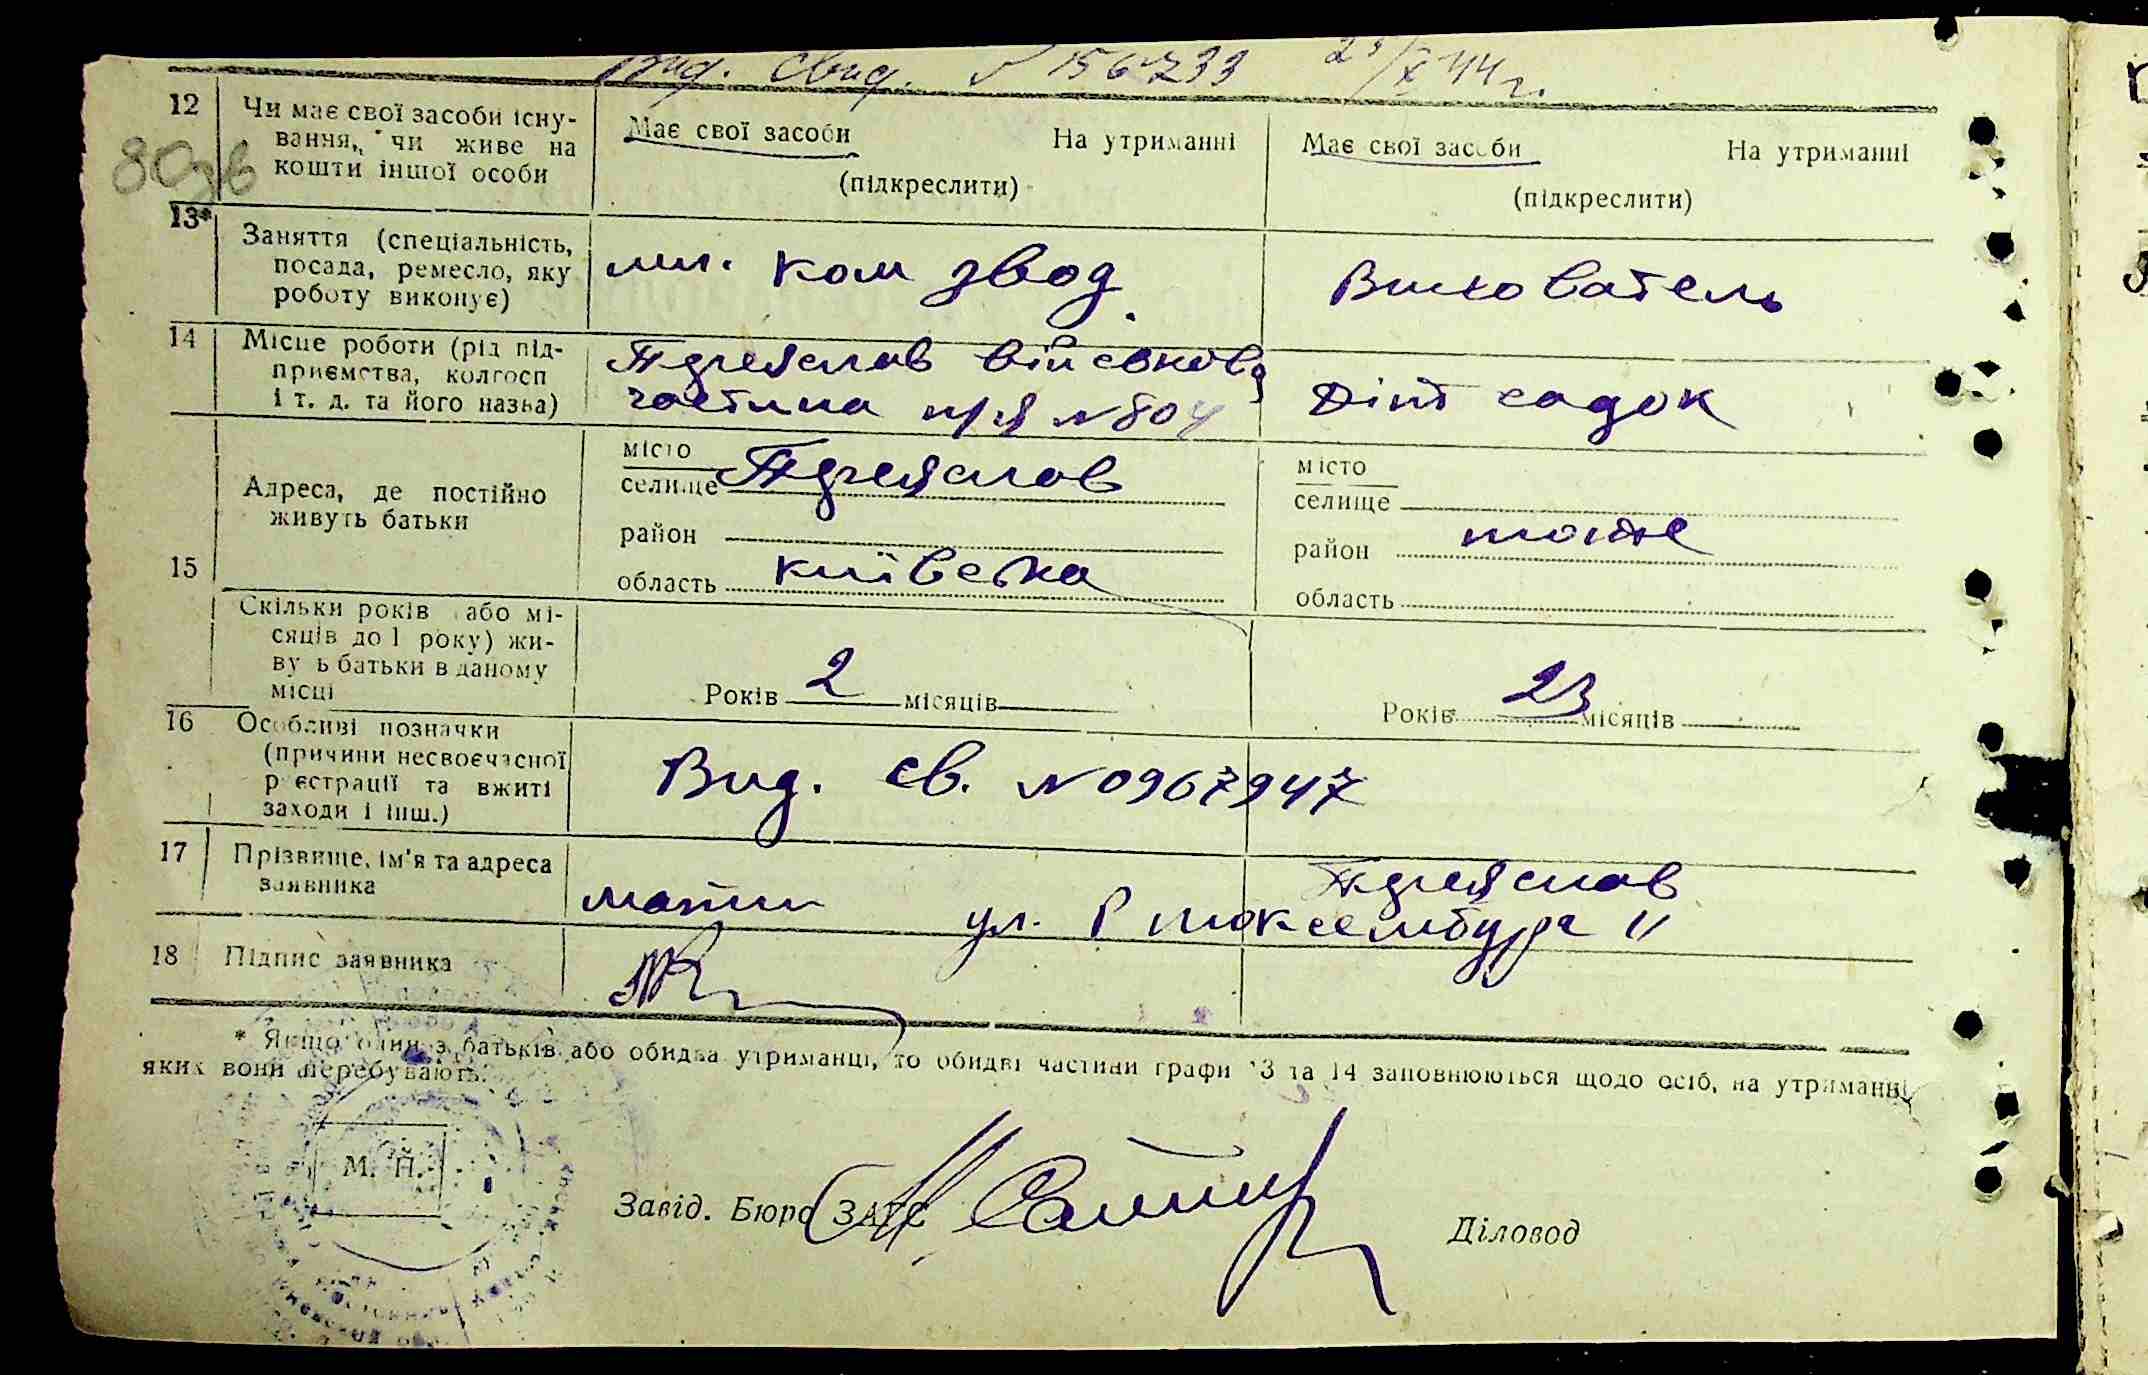 Вид. свид. № 156733 29/X 44 г.
12 Чи має свої засоби існу-
вання, чи живе на
кошти іншої особи
80зв
Має свої засоби На утриманні
(підкреслити)
Має свої засоби На утриманні
(підкреслити)
13* Заняття (спеціальність,
посада, ремесло, яку
роботу виконує)
мл. ком звод.
Вихователь
14 Місце роботи (рід під-
приємства, колгосп
і т. д. та його назва)
Переяслав військова
частина п/я № 804
Діт садок
15 Адреса, де постійно
живуть батьки
місто
селище Переяслав
район
область київська
місто
селище
район тоже
область
Скільки років або мі-
сяців до 1 року) жи-
вуть батьки в даному
місці
Років 2 місяців
Років 23 місяців
16 Особливі позначки
(причини несвоєчасної
реєстрації та вжиті
заходи і інш.)
Вид. св. № 0967947
17 Прізвище, ім'я та адреса
заявника
мати Переяслав
ул. Р Люксембург 11
18 Підпис заявника
* Якщо один з батьків або обидва утриманці, то обидві частини графи 13 та 14 заповнюються щодо осіб, на утриманні
яких вони перебувають.
М. П.
Завід. Бюро ЗАГС Діловод